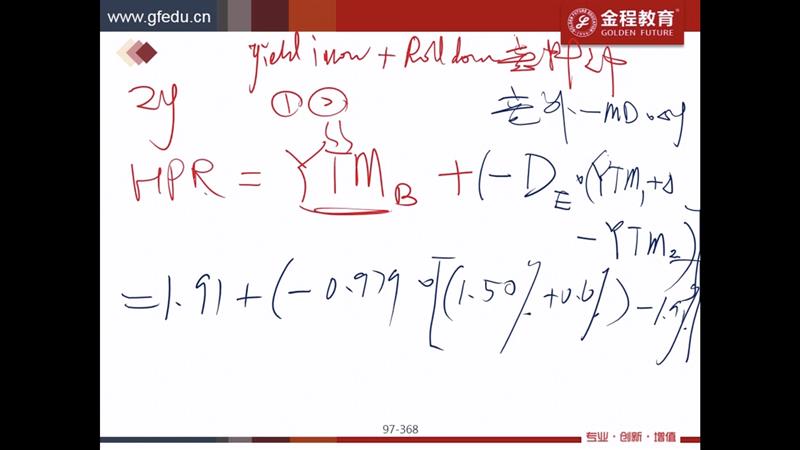 www.gfedu.cn
金程教育
GOLDEN FUTURE
yield + Roll down
2y ① ② 意外 -MD·Δy
HPR = YTM_B + (-D_E·(YTM_1+Δ
- YTM_2)
= 1.91 + (-0.979·[(1.50%+0.6%) - 1.91%]
97-368
专业·创新·增值